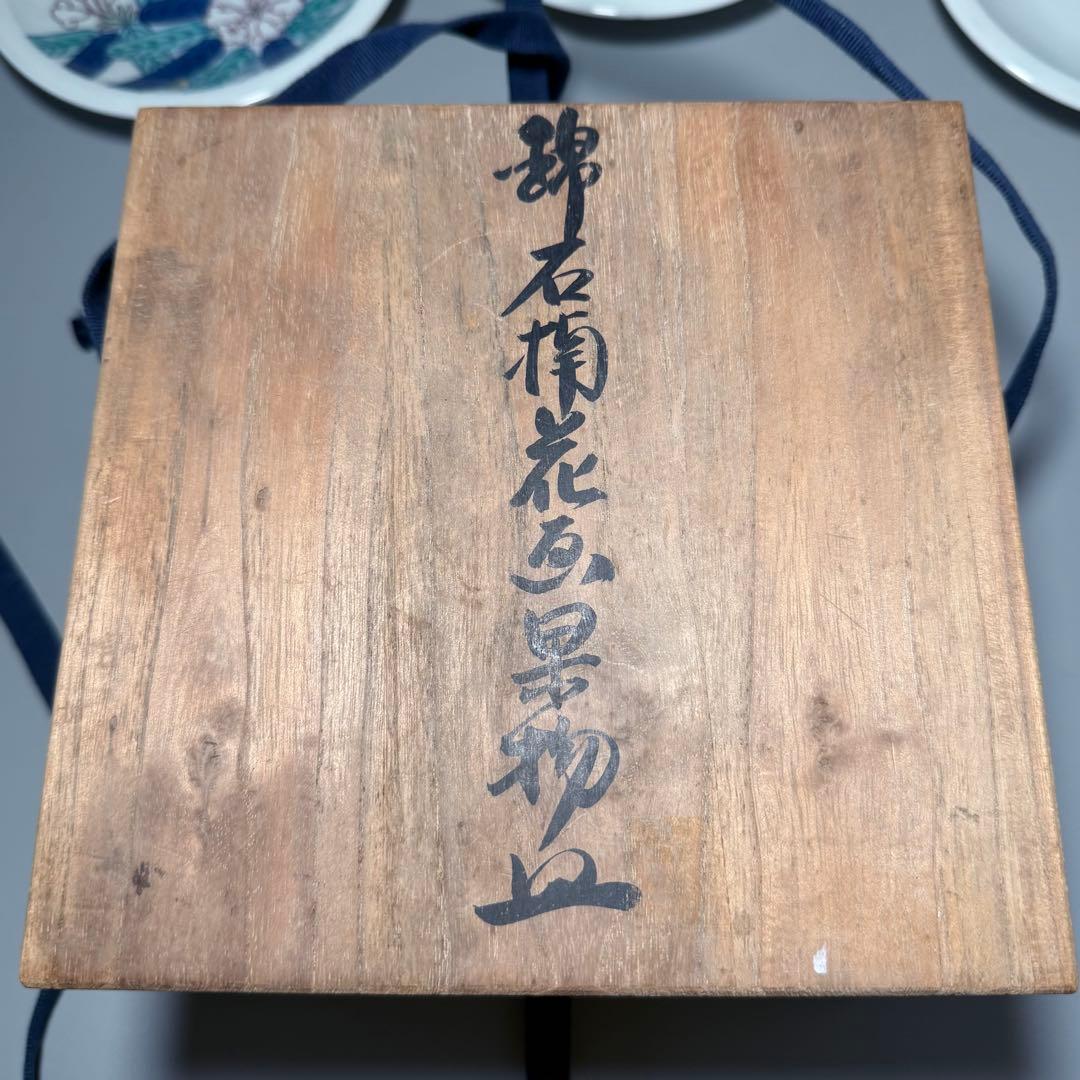 錦石楠花画果物皿